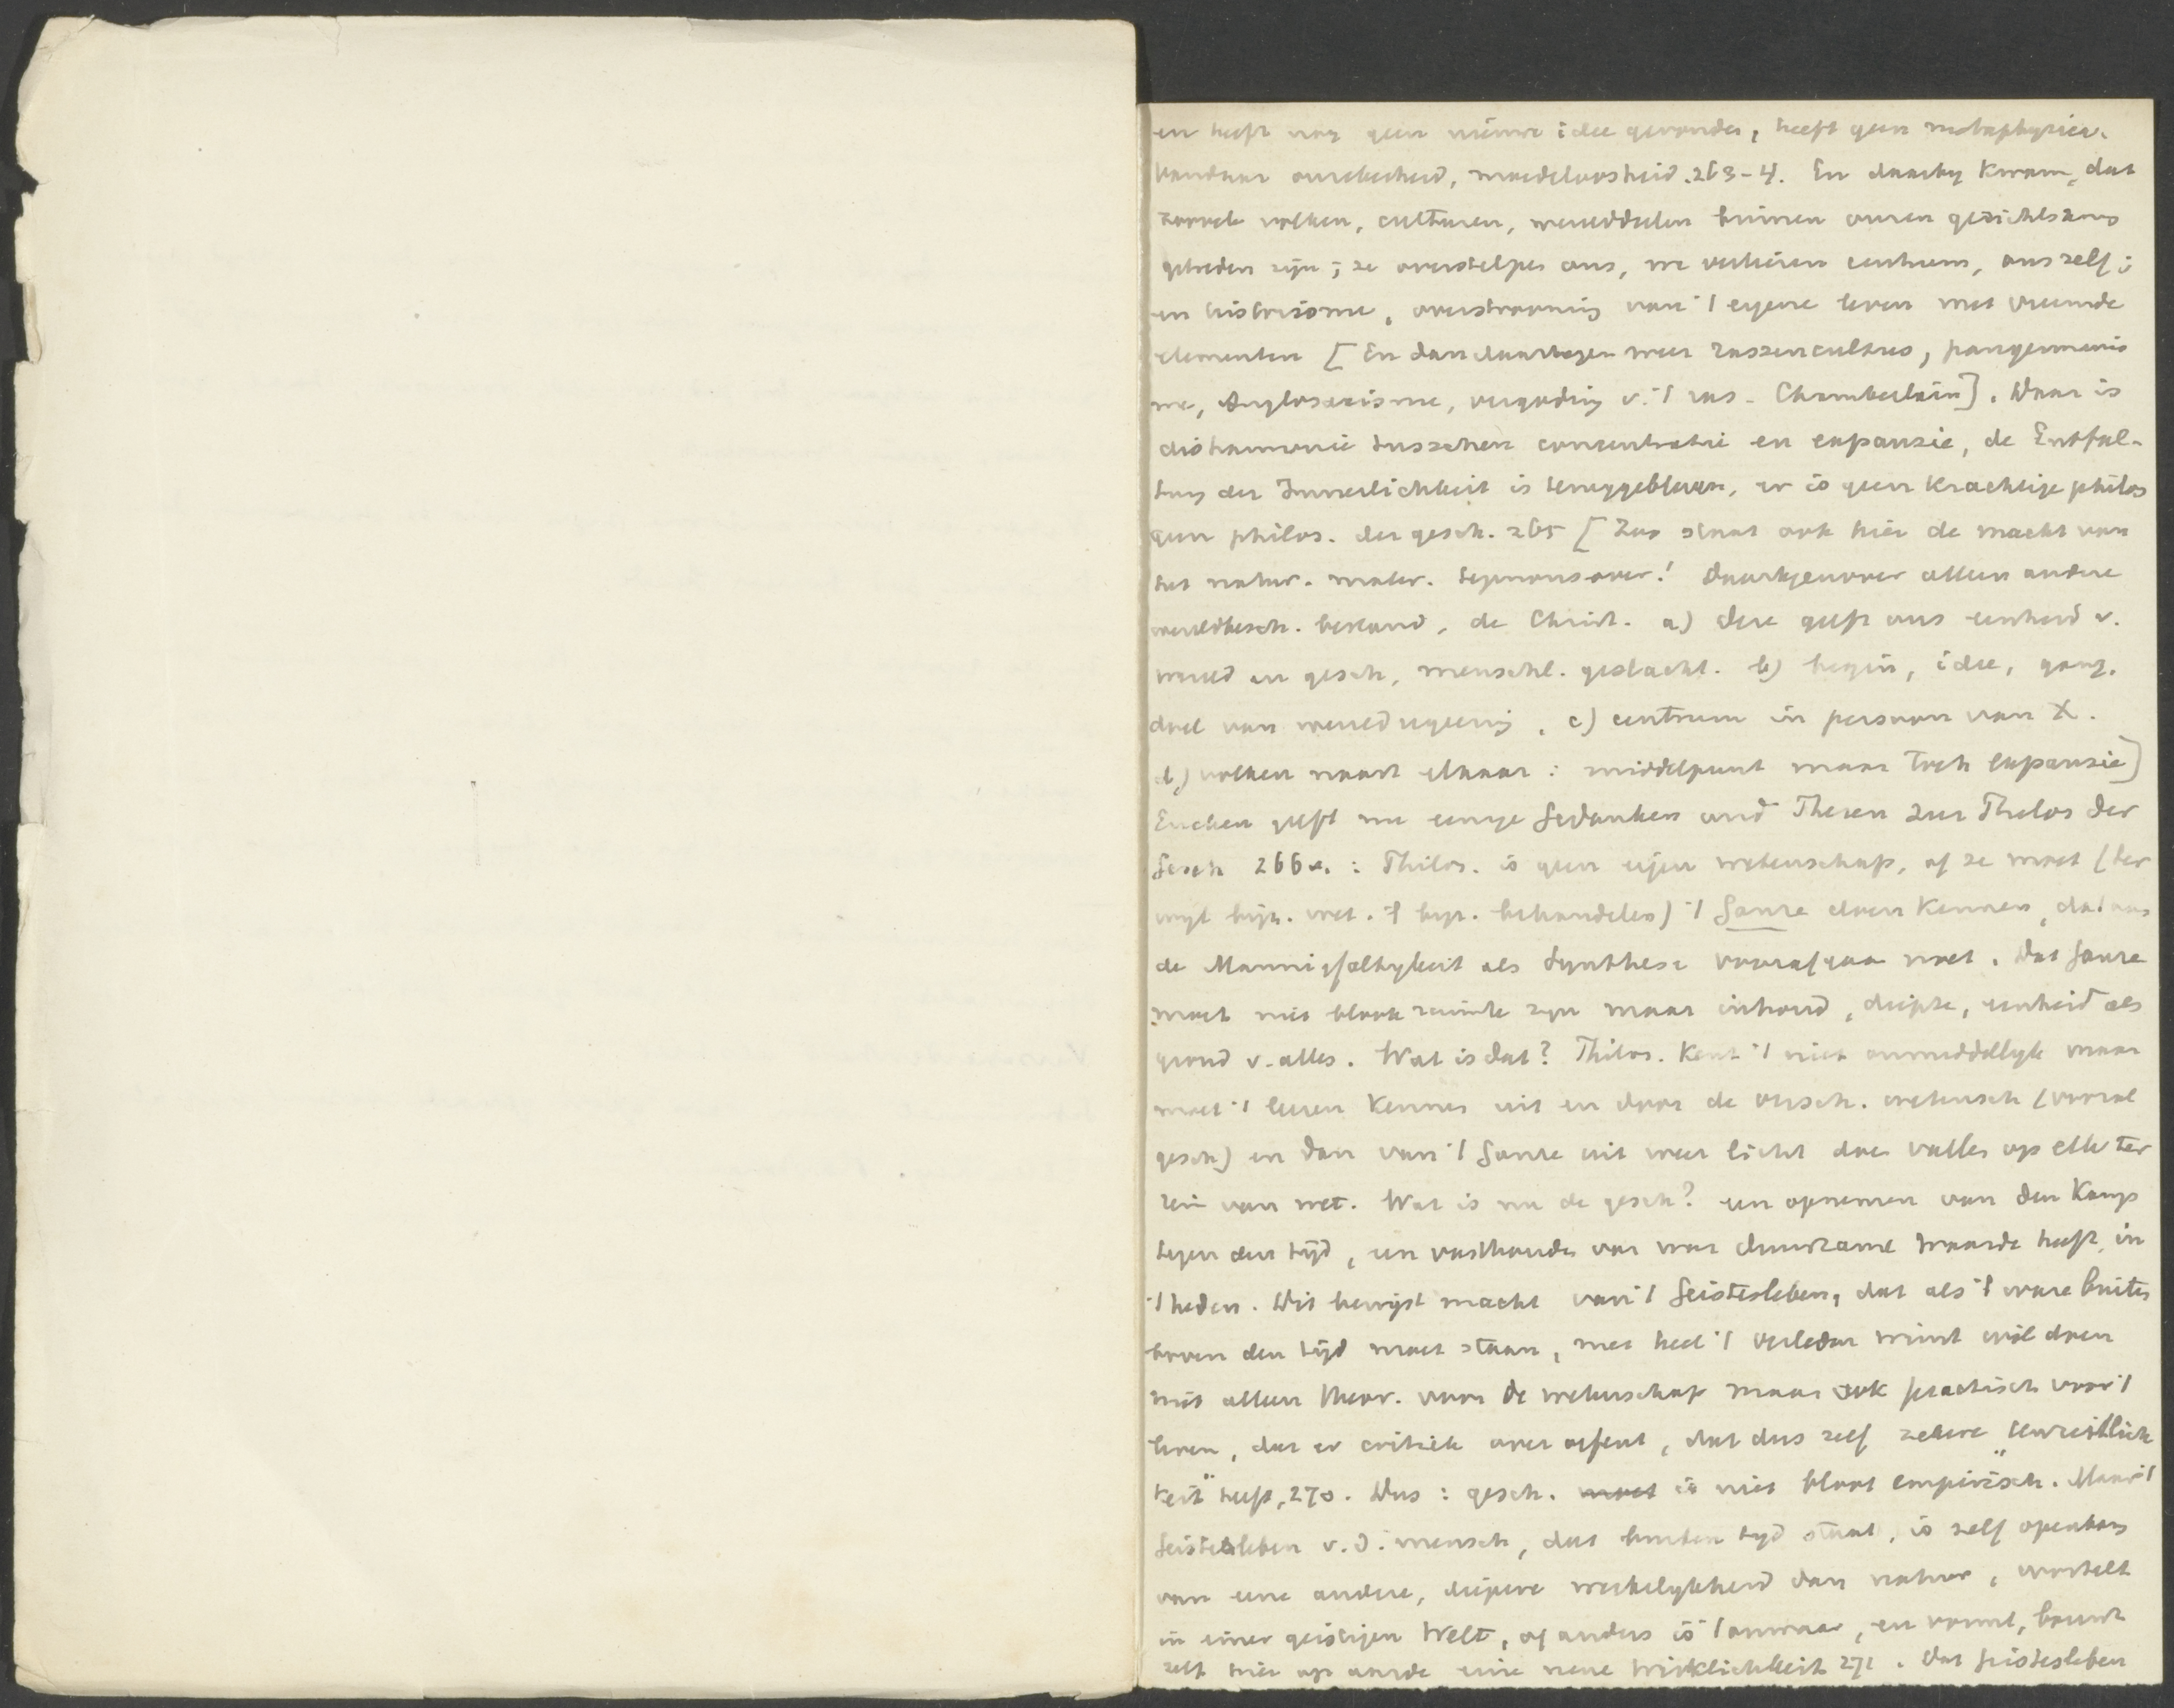 en heeft nog geen nieuwe idee gevonden, heeft geen metaphysica.
Vandaar onzekerheid, moedeloosheid. 263-4. En daarby kwam, dat
zoovele volken, culturen, werelddeelen binnen onzen gezichtskring
getreden zijn; ze overstelpen ons, we verliezen centrum, ons zelf;
en historisme, overstrooming van 't eigene leven met vreemde
elementen [En dan daartegen weer rassencultus, pangermanis
me, Anglosaxisme, vergoding v. 't ras - Chamberlain]. Daar is
disharmonie tusschen concentratie en expansie, de Entfal-
tung der Innerlichkeit is teruggebleven, er is geen krachtige philos
geen philos. der gesch. 265 [Zoo staat ook hier de macht van
het natur. mater. tegenover! Daartegenover alleen andere
wereldbesch. bestand, de Christ. a) deze geeft ons eenheid v.
wereld en gesch, menschl. geslacht. b) begin, idee, gang,
doel van wereldregeering, c) centrum in persoon van X.
d) volken naast elkaar: middelpunt maar toch expansie]
Eucken geeft nu eenige Gedanken und Thesen zur Philos der
Gesch 266v. : Philos. is geen eigen wetenschap, of ze moet (ter
wijl bijz. wet. 't byz. behandelen) 't Ganze doen kennen, dat aan
de Mannigfaltigkeit als Synthese voorafgaan moet. Dat Ganze
moet niet bloot ruimte zyn maar inhoud, diepte, eenheid als
grond v. alles. Wat is dat? Philos. kent 't niet onmiddellyk maar
moet 't leeren kennen uit en door de versch. wetensch (vooral
gesch) en dan van 't Ganze uit weer licht doen vallen op elk ter
rein van wet. Wat is nu de gesch? een opnemen van den kamp
tegen den tijd, een vasthouden van wat duurzame waarde heeft, in
't heden. Dit bewijst macht van 't Geistesleben, dat als 't ware buiten
boven den tijd moet staan, met heel 't verleden winst wil doen
niet alleen theor. voor de wetenschap maar ook practisch voor 't
leven, dat er critiek over oefent, dat dus zelf zekere "Uberzeitlich
keit" heeft, 270. Dus: gesch. moet is niet bloot empirisch. Maar 't
Geistesleben v. d. mensch, dat buiten tyd staat, is zelf openbaring
van eene andere, diepere werkelykheid dan natuur, wortelt
in einer geistigen Welt, of anders is 't onwaar, en vormt, bouwt
zelf hier op aarde eine neue Wirklichkeit 271. Dat Geistesleben